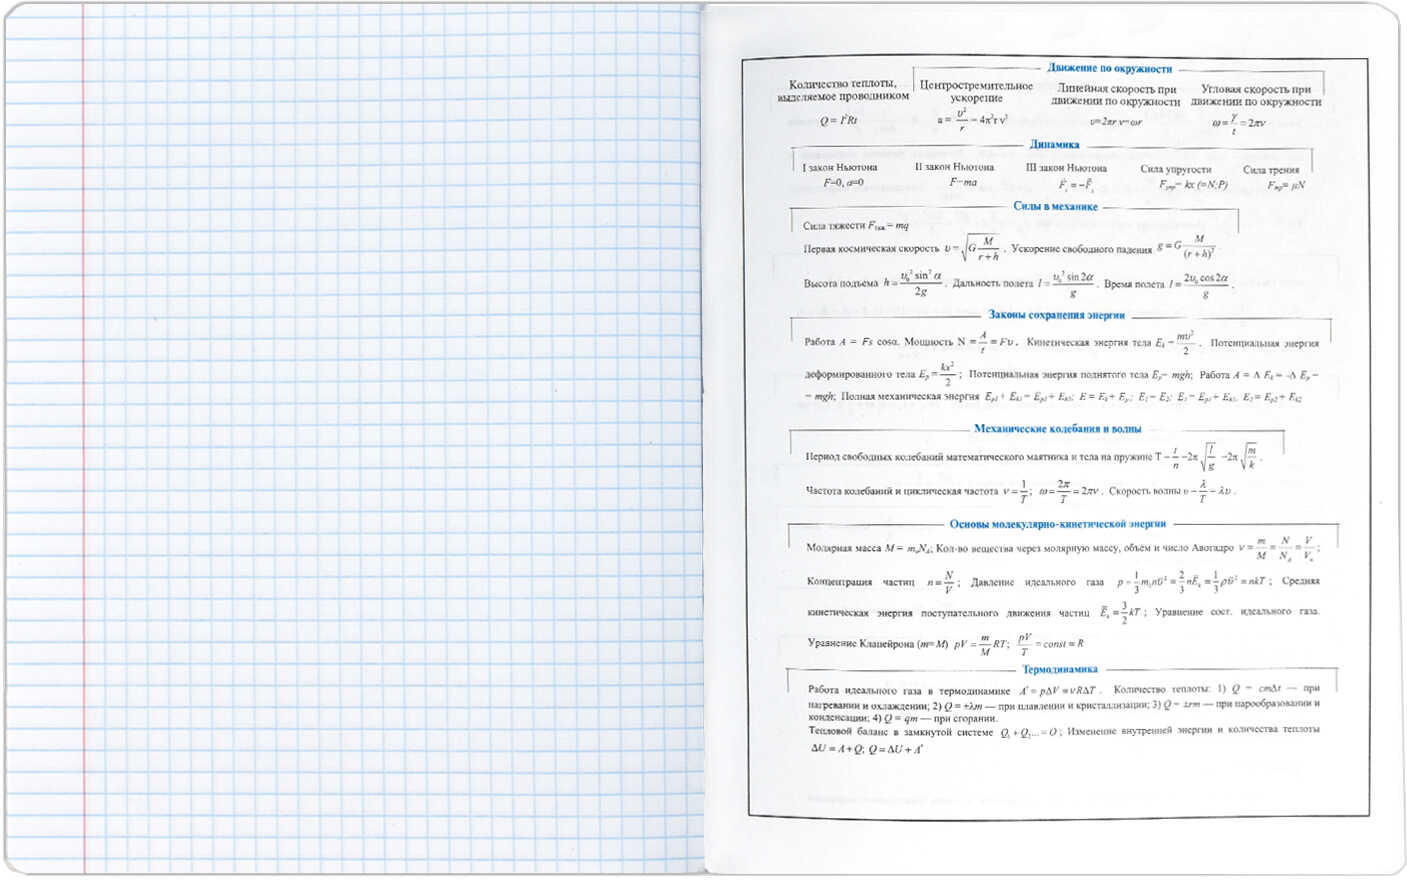 Движение по окружности
Количество теплоты, выделяемое проводником
Q = I²Rt
Центростремительное ускорение
a = υ²/r = 4π²r ν²
Линейная скорость при движении по окружности
υ=2πr ν=ωr
Угловая скорость при движении по окружности
ω = γ/t = 2πν
Динамика
I закон Ньютона
F=0, a=0
II закон Ньютона
F=ma
III закон Ньютона
Сила упругости
Fупр= kx (=N;P)
Сила трения
Fтр= μN
Силы в механике
Сила тяжести Fтяж = mq
Первая космическая скорость υ = √(G M/(r+h)) . Ускорение свободного падения g = G M/(r+h)² .
Высота подъема h = υ₀² sin² α/2g . Дальность полета l = υ₀² sin 2α/g . Время полета l = 2υ₀ cos 2α/g .
Законы сохранения энергии
Работа A = Fs cosα. Мощность N = A/t = Fυ . Кинетическая энергия тела Ek = mυ²/2 . Потенциальная энергия
деформированного тела Ep = kx²/2 ; Потенциальная энергия поднятого тела Ep= mgh; Работа A = Δ Ek = -Δ Ep =
= mgh; Полная механическая энергия
Механические колебания и волны
Период свободных колебаний математического маятника и тела на пружине T = t/n =2π √(l/g) =2π √(m/k) .
Частота колебаний и циклическая частота ν = 1/T ; ω = 2π/T = 2πν . Скорость волны υ = λ/T = λυ .
Основы молекулярно-кинетической энергии
Молярная масса M = mₒNA; Кол-во вещества через молярную массу, объем и число Авогадро ν = m/M = N/NA = V/Vм ;
Концентрация частиц n = N/V ; Давление идеального газа p = 1/3 m₀nῡ² = 2/3 nĒk = 1/3 ρῡ² = nkT ; Средняя
кинетическая энергия поступательного движения частиц Ēk = 3/2 kT ; Уравнение сост. идеального газа.
Уравнение Клапейрона (m=M) pV = m/M RT; pV/T = const = R
Термодинамика
Работа идеального газа в термодинамике A' = pΔV = νRΔT . Количество теплоты: 1) Q = cmΔt — при
нагревании и охлаждении; 2) Q = ±λm — при плавлении и кристаллизации; 3) Q = ±rm — при парообразовании и
конденсации; 4) Q = qm — при сгорании.
Тепловой баланс в замкнутой системе Q₁ + Q₂... = O ; Изменение внутренней энергии и количества теплоты
ΔU = A + Q; Q = ΔU + A'